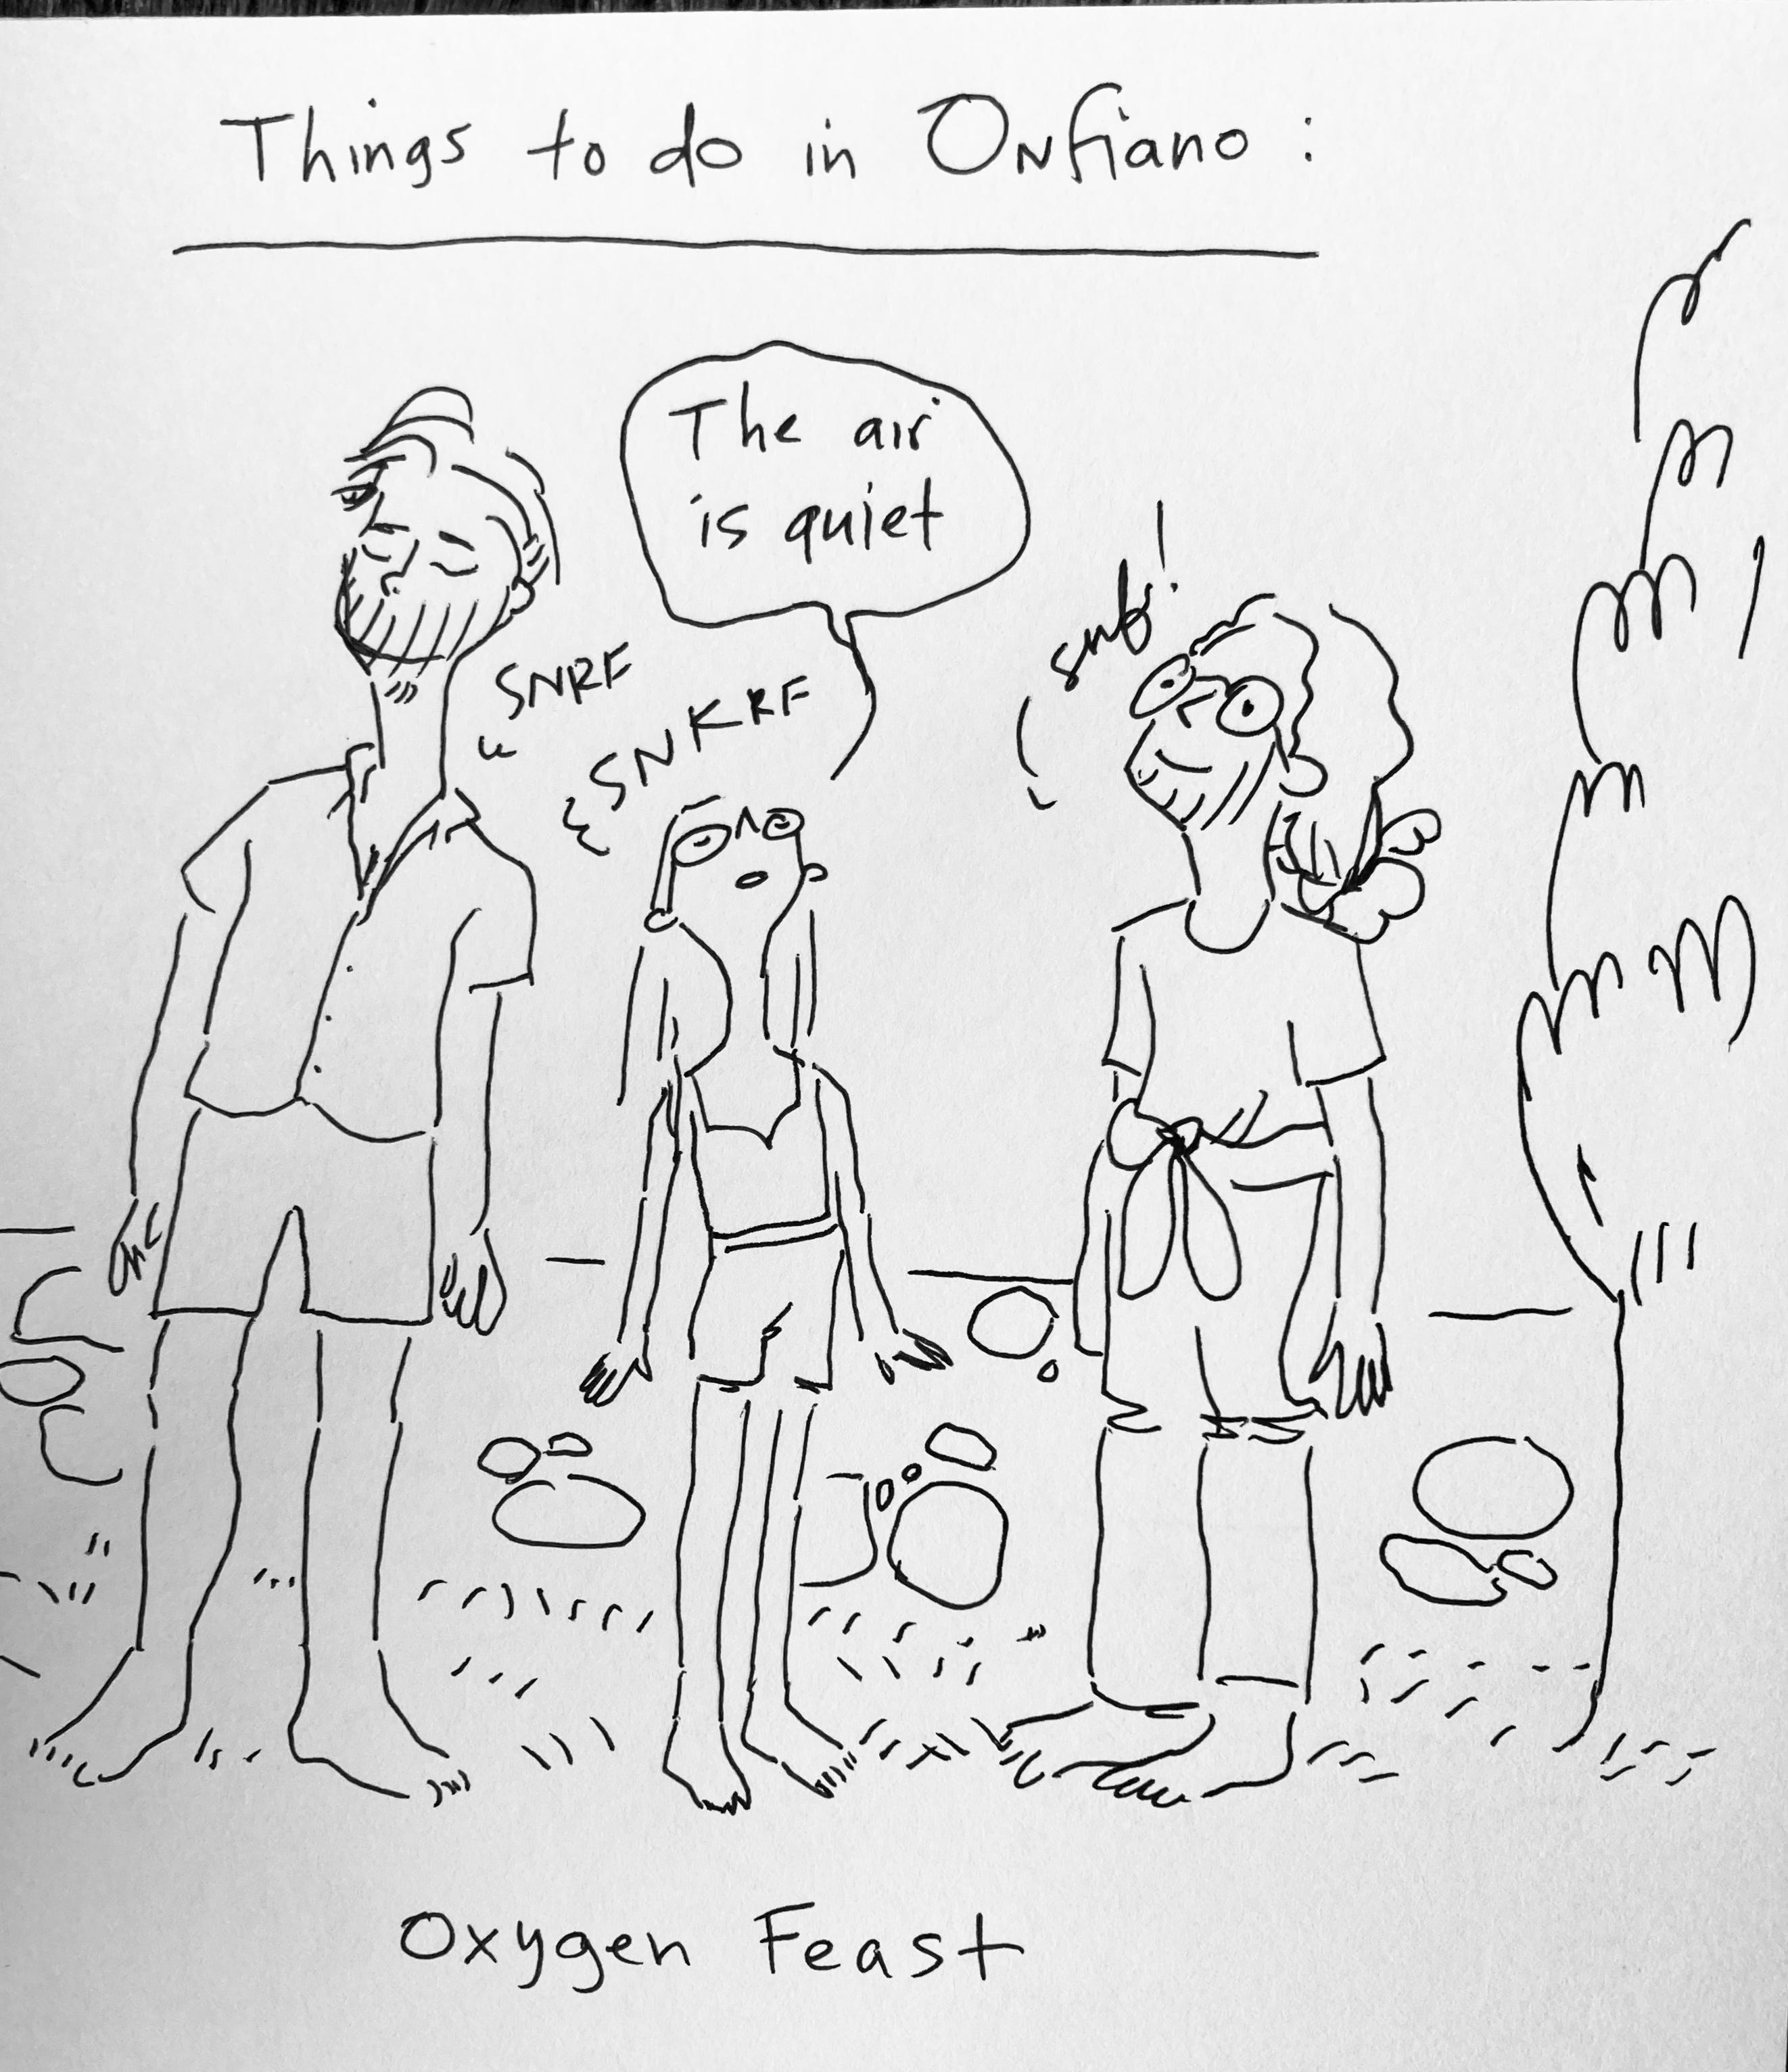 Things to do in Onfiano:
The air
is quiet
SNRF
SNKRF
snf!
Oxygen Feast